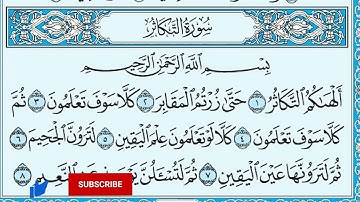 سُورَةُ التَّكَاثُرِ
بِسْمِ اللَّهِ الرَّحْمَٰنِ الرَّحِيمِ
أَلْهَىٰكُمُ التَّكَاثُرُ ١ حَتَّىٰ زُرْتُمُ الْمَقَابِرَ ٢ كَلَّا سَوْفَ تَعْلَمُونَ ٣ ثُمَّ
كَلَّا سَوْفَ تَعْلَمُونَ ٤ كَلَّا لَوْ تَعْلَمُونَ عِلْمَ الْيَقِينِ ٥ لَتَرَوُنَّ الْجَحِيمَ ٦
ثُمَّ لَتَرَوُنَّهَا عَيْنَ الْيَقِينِ ٧ ثُمَّ لَتُسْأَلُنَّ النَّعِيمِ ٨
SUBSCRIBE